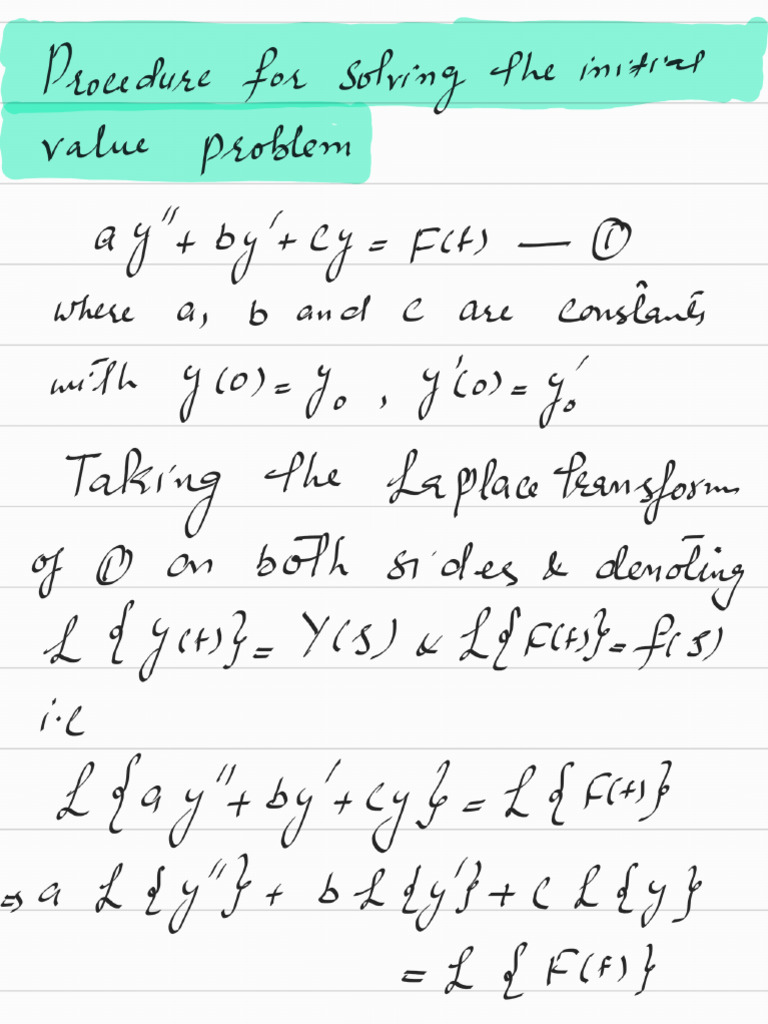 Procedure for solving the initial
value problem
ay″ + by′ + cy = F(t) — ①
where a, b and c are constants
with y(0) = y₀ , y′(0) = y₀′
Taking the Laplace transform
of ① on both sides & denoting
ℒ{y(t)} = Y(s) & ℒ{F(t)} = f(s)
i.e
ℒ{ay″ + by′ + cy} = ℒ{F(t)}
⇒ a ℒ{y″} + b ℒ{y′} + c ℒ{y}
= ℒ{F(t)}